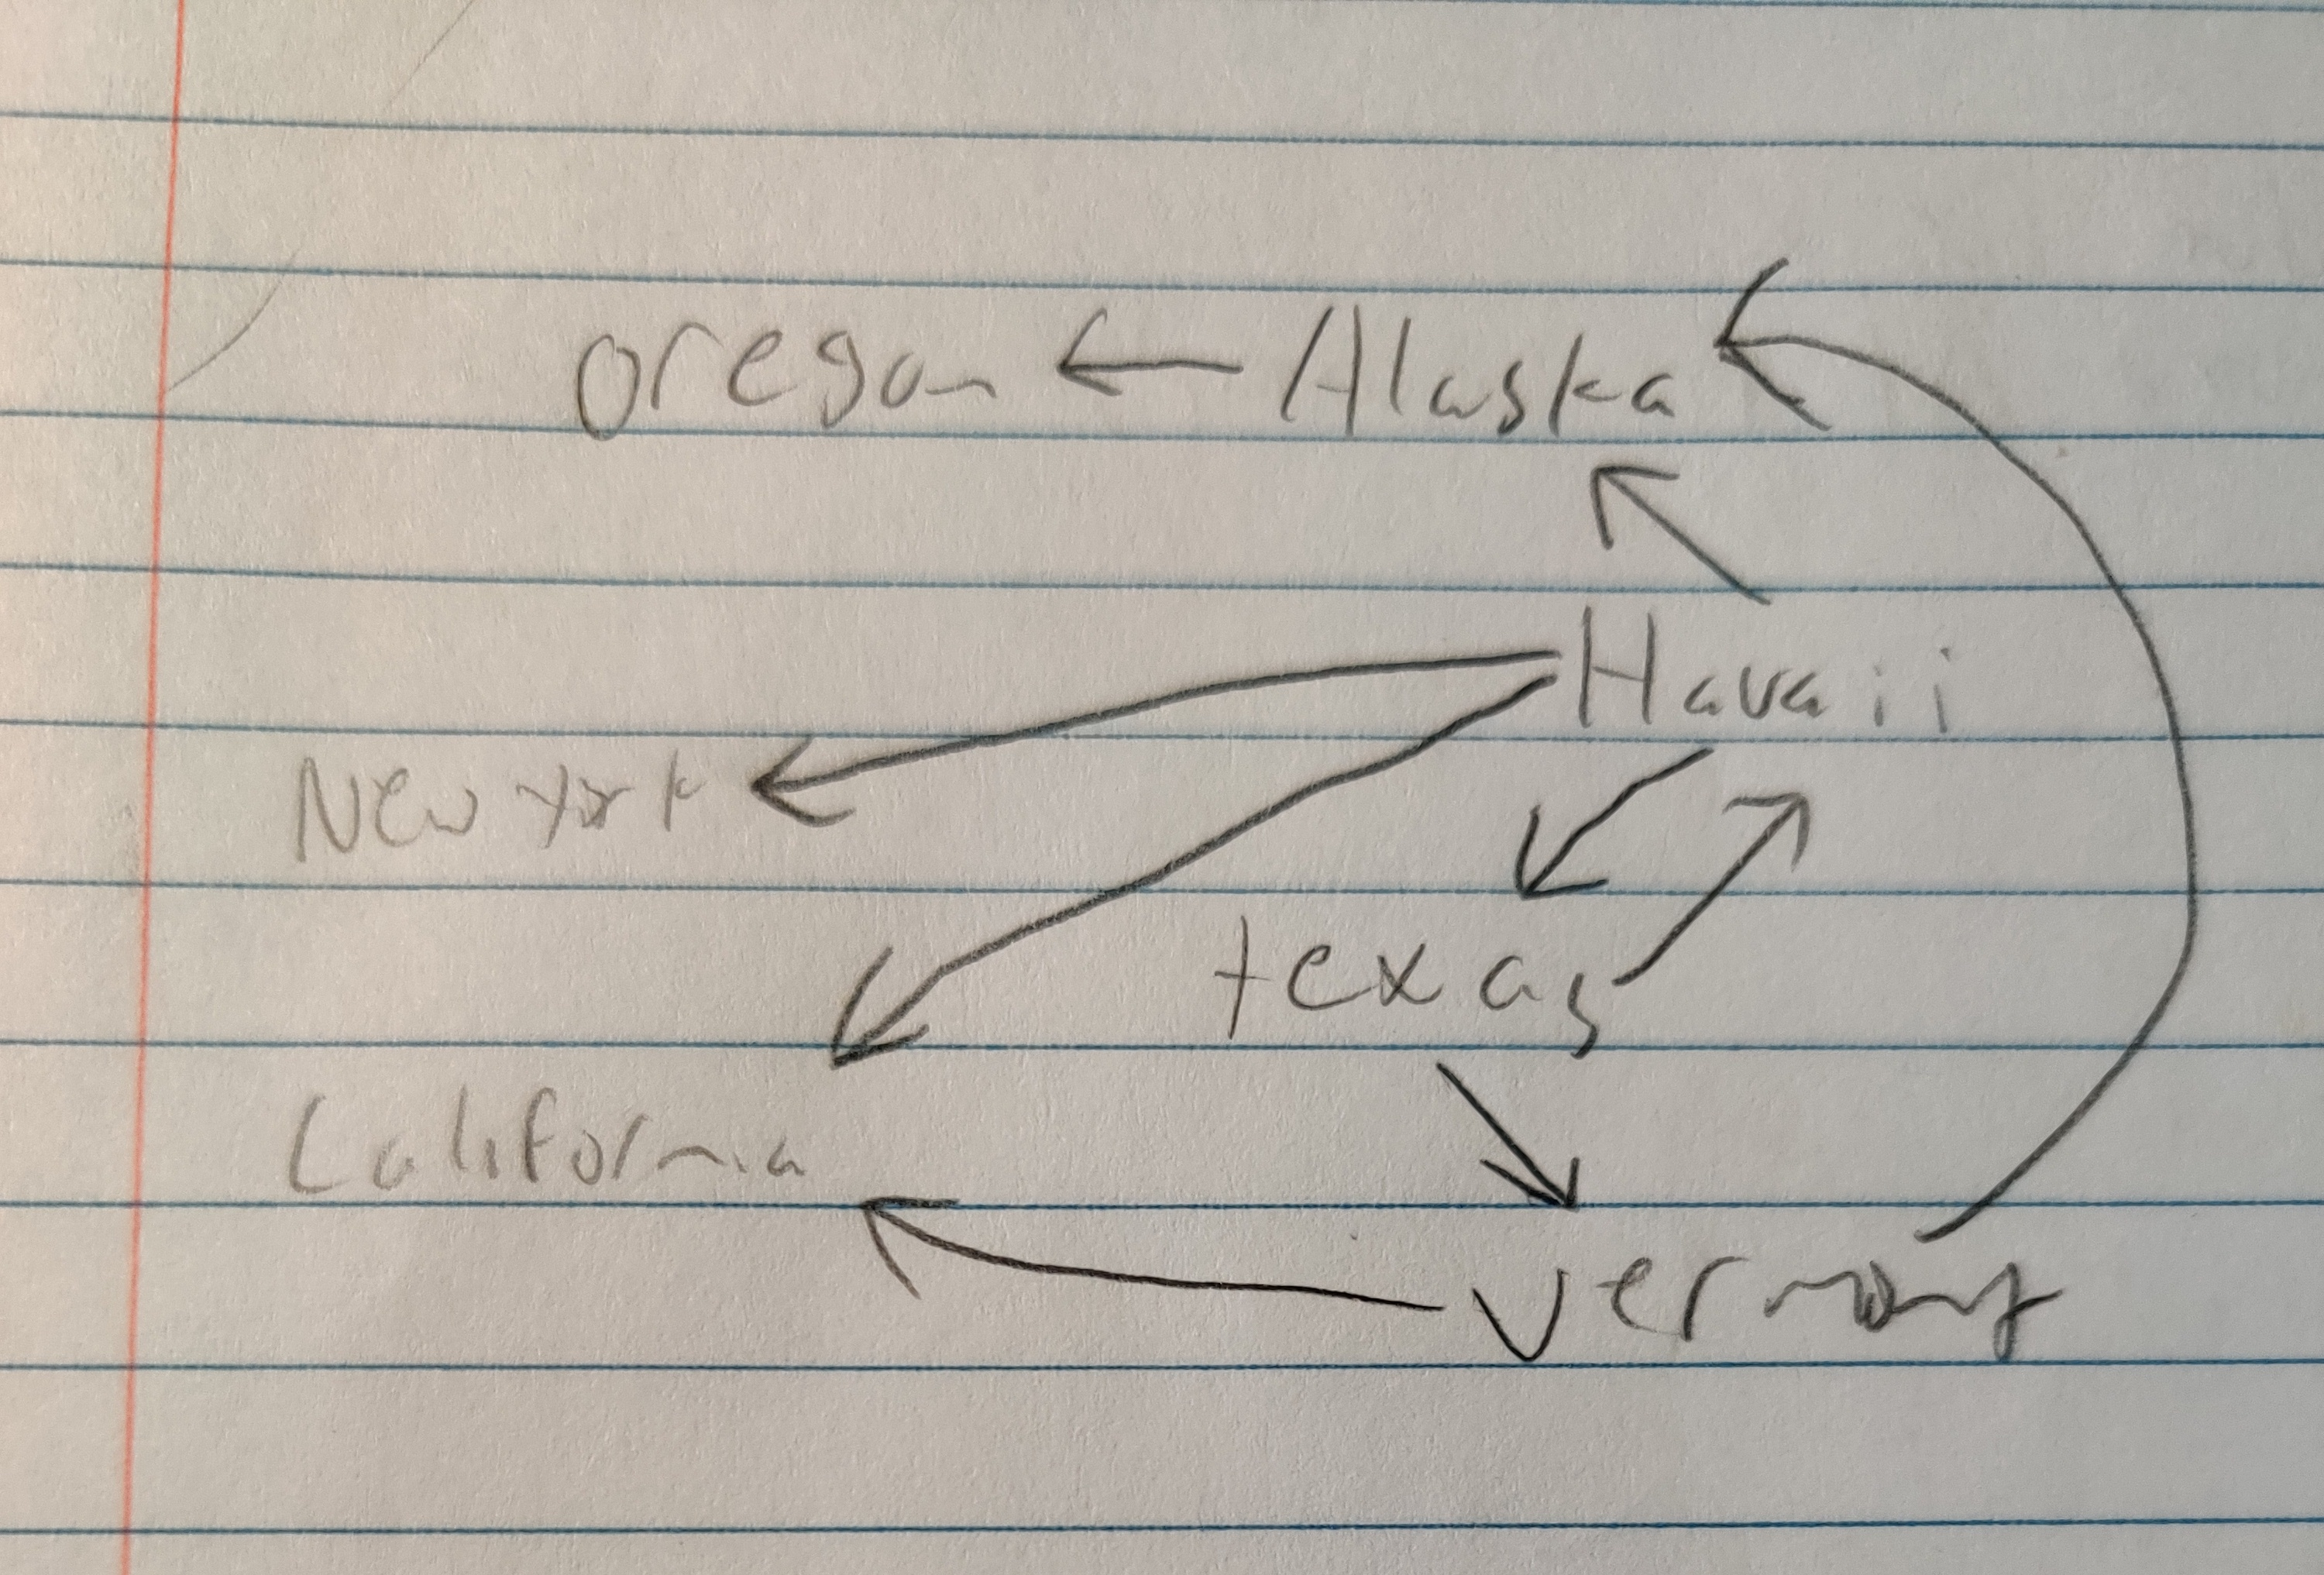 oregon Alaska
Havaii
New York
texas
California
vermont